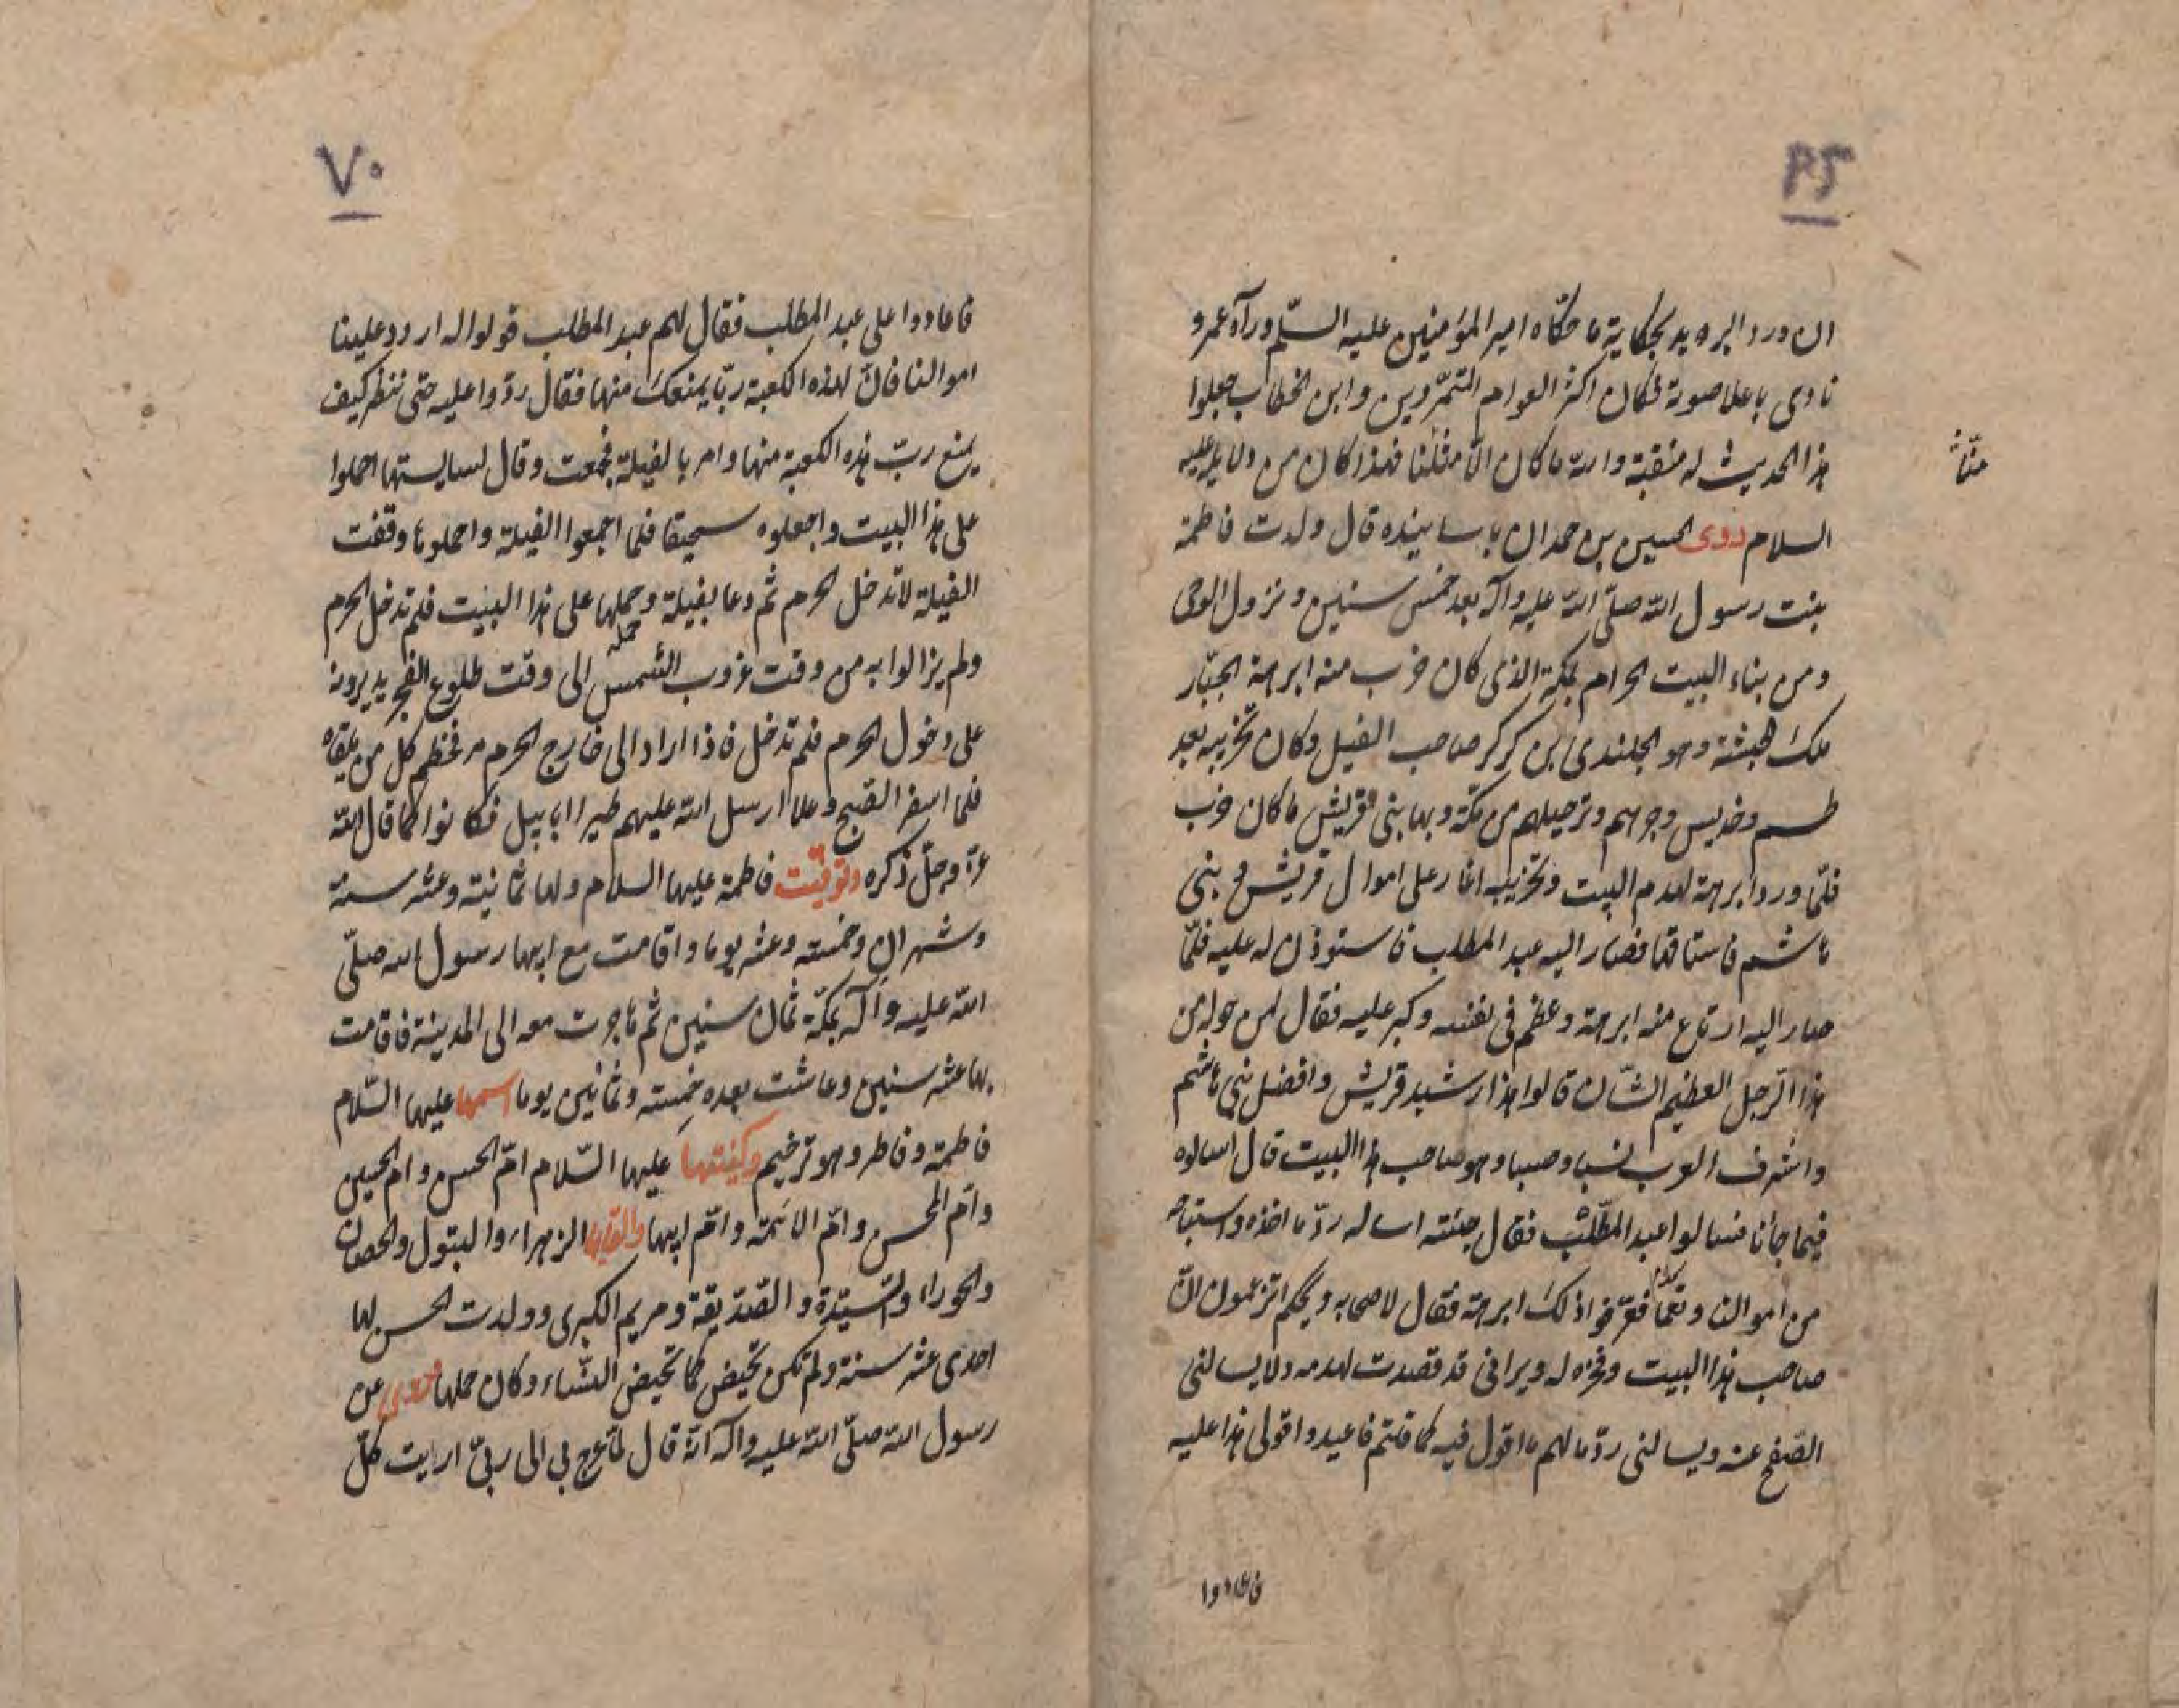 ٣٥
ان ورد البريد بحكاية ما حكاه امير المؤمنين عليه السّلم ورآه عمرو
نادى باعلا صوته فكان اكثر العوام المتمرّدين وابن الخطاب جعلوا
هذا الحديث له منقبة والله ما كان الّا مثلنا فهذا كان من دلايله عليه
السلام روى الحسين بن حمدان باسانيده قال ولدت فاطمة
بنت رسول الله صلّى الله عليه وآله بعد خمس سنين ونزول الوحى
ومن بناء البيت الحرام بمكة الذى كان خرب منه ابرهة الجبّار
ملك الحبشة وهو الجلندى بن كركر صاحب الفيل وكان تخريبه بعد
طسم وجديس وجرهم وترحيلهم من مكّة وبها بنى قريش ما كان خرب
فلمّا ورد ابرهة لهدم البيت وتخريبه اغار على اموال قريش وبنى
هاشم فاستاقها فصار اليه عبد المطلب فاستوذن له عليه فلمّا
صار اليه ارتاع منه ابرهة وعظم فى نفسه وكبر عليه فقال لمن حوله من
هذا الرّجل العظيم الشّان قالوا هذا رشيد قريش وافضل بنى هاشم
واشرف العرب نسبا وحسبا وهو صاحب هذا البيت قال اسالوه
فيما جأنا فسالوا عبد المطّلب فقال جئته اساله ردّ ما اخذه واستباحه
من اموالنا فقرّفوا ذلك ابرهة فقال لاصحابه ويحكم اتزعمون انّ
صاحب هذا البيت وفخره له ويرانى قد قصدت لهدمه ولا يسالنى
الصّفح عنه ويسالنى ردّ مالهم ما اقول فيه كما قلتم فاعيدوا قولى هذا عليه
فاعادوا
٧٠
فاعادوا على عبد المطلب فقال لهم عبد المطلب قولوا له اردد علينا
اموالنا فانّ لهذه الكعبة ربّا يمنعك منها فقال ردّوا عليه حتى ننظر كيف
يمنع ربّ هذه الكعبة منها وامر بالفيلة فجمعت وقال لسايستها احملوا
على هذا البيت واجعلوه سحيقا فلما اجمعوا الفيلة واحملوها وقفت
الفيلة لا تدخل الحرم ثم دعا بفيلة وحملها على هذا البيت فلم تدخل الحرم
ولم يزالوا به من وقت غروب الشمس الى وقت طلوع الفجر يديرونه
على دخول الحرم فلم تدخل فاذا اراد الى خارج الحرم مر فحطم كل من يلقاه
فلما اسفر الصّبح وعلا ارسل الله عليهم طيرا ابابيل فكانوا كما قال الله
عزّ وجلّ ذكره وتوفيت فاطمة عليها السلام ولها ثمانية وعشر سنة
وشهران وخمسة وعشر يوما واقامت مع ابيها رسول الله صلّى
الله عليه وآله بمكّة ثمان سنين ثم هاجرت معه الى المدينة فاقامت
بها عشر سنين وعاشت بعده خمسة وثمانين يوما اسمها عليها السّلام
فاطمة وفاطر وهو ترخيم وكنيتها عليها السّلام امّ الحسن وام الحسين
وامّ المحسن وامّ الائمّة وامّ ابيها والقابها الزهراء والبتول والحصان
والحوراء والسّيّدة والصّدّيقة ومريم الكبرى وولدت الحسن لها
احدى عشر سنة ولم تكن تحيض كما تحيض النّساء وكان حملها روى عن
رسول الله صلّى الله عليه وآله انّه قال لمّا عرج بى الى ربّى ارايت كلّ